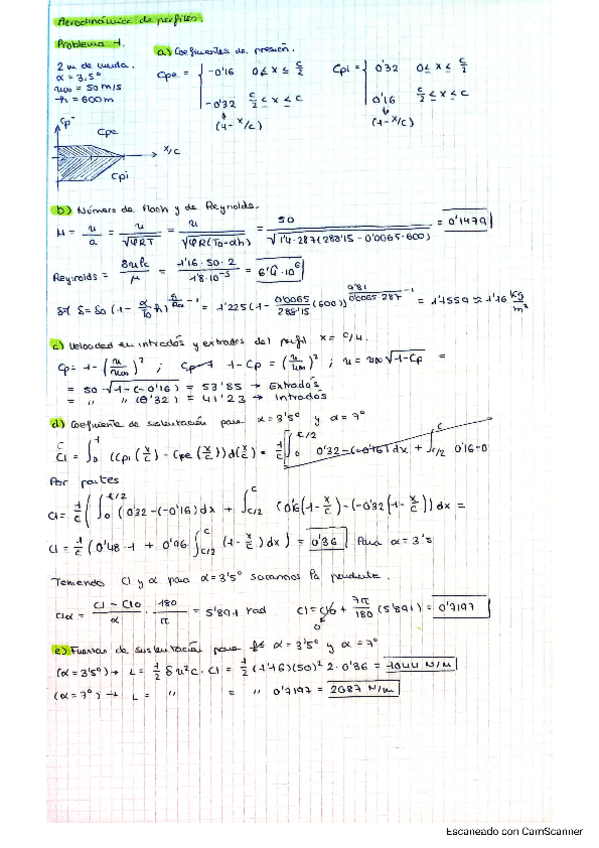 Aerodinámica de perfiles.
Problema 1.
a) Coeficientes de presión.
2 m de cuerda.
α = 3,5°
u∞ = 50 m/s
h = 600 m
Cpe = { -0'16 0 ≤ x ≤ c/2
-0'32 c/2 ≤ x ≤ c
(1-x/c)
Cpi = { 0'32 0 ≤ x ≤ c/2
0'16 c/2 ≤ x ≤ c
(1-x/c)
Cp
Cpe
x/c
Cpi
b) Número de Mach y de Reynolds.
M = u/a = u/√(γRT) = u/√(γR(T0-αh)) = 50/√(1'4·287(288'15-0'0065·600)) = 0'1479
Reynolds = δuc/μ = 1'16·50·2/1'8·10⁻⁵ = 6'4·10⁶
δ = δ0 (1 - α/T0 h) = 1'225(1 - 0'0065/288'15 (600))^(9'81/0'0065·287 -1) = 1'1559 ≈ 1'16 kg/m³
c) Velocidad en intradós y extradós del perfil x = c/4.
Cp = 1 - (u/u∞)² ; 1 - Cp = (u/u∞)² ; u = u∞ √1-Cp =
= 50 √1-(-0'16) = 53'85 → Extradós
= " " (0'32) = 41'23 → Intradós
d) Coeficiente de sustentación para α = 3'5° y α = 7°
Cl = ∫₀¹ (Cpi (x/c) - Cpe (x/c)) d(x/c) = 1/c [∫₀^c/2 0'32-(-0'16) dx + ∫c/2^c 0'16-0
Por partes
Cl = 1/c (∫₀^c/2 (0'32-(-0'16) dx + ∫c/2^c (0'16(1-x/c) - (-0'32(1-x/c)) dx =
Cl = 1/c (0'48·1 + 0'96 ∫c/2^c (1-x/c) dx) = 0'36 Para α = 3'5
Teniendo Cl y α para α = 3'5° sacamos la pendiente.
Clα = Cl - Cl0/α · 180/π = 5'891 rad Cl = Cl0 + 7π/180 (5'891) = 0'7197
0
e) Fuerzas de sustentación para α = 3'5° y α = 7°
(α = 3'5°) → L = 1/2 δ u² c · Cl = 1/2 (1'16)(50)² 2 · 0'36 = 1044 N/m
(α = 7°) → L = " = " 0'7197 = 2087 N/m
Escaneado con CamScanner